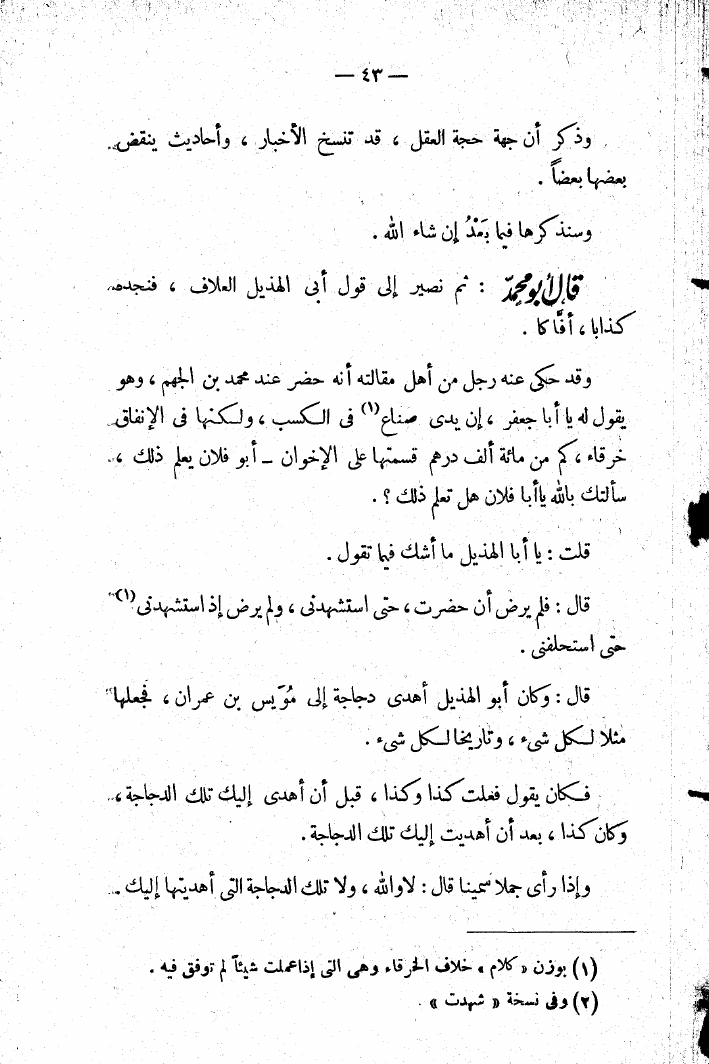 — ٤٣ —
وذكر أن جهة حجة العقل ، قد تنسخ الأخبار ، وأحاديث ينقض
بعضها بعضاً .
وسنذكرها فيما بَعْدُ إن شاء الله .
قال أبو محمدّ : ثم نصير إلى قول أبى الهذيل العلاف ، فنجده
كذابا ، أفَّاكا .
وقد حكى عنه رجل من أهل مقالته أنه حضر عند محمد بن الجهم ، وهو
يقول له يا أبا جعفر ، إن يدى صناع(١) فى الكسب ، ولكنها فى الإنفاق
خرقاء ، كم من مائة ألف درهم قسمتها على الإخوان ــ أبو فلان يعلم ذلك ،
سألتك بالله يا أبا فلان هل تعلم ذلك ؟ .
قلت : يا أبا الهذيل ما أشك فيما تقول .
قال : فلم يرض أن حضرت ، حتى استشهدنى ، ولم يرض إذ استشهدنى(١)
حتى استحلفنى .
قال : وكان أبو الهذيل أهدى دجاجة إلى مُوَيس بن عمران ، فجعلها
مثلا لكل شىء ، وتاريخا لكل شىء .
فكان يقول فعلت كذا وكذا ، قبل أن أهدى إليك تلك الدجاجة ،
وكان كذا ، بعد أن أهديت إليك تلك الدجاجة .
وإذا رأى جملا سمينا قال : لا والله ، ولا تلك الدجاجة التى أهديتها إليك .
(١) بوزن « كلام » خلاف الخرقاء وهى التى إذا عملت شيئاً لم توفق فيه .
(٢) وفى نسخة « شهدت » .